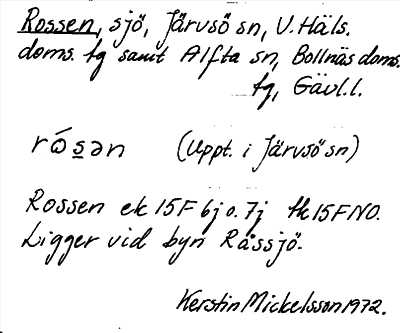 Rossen, sjö, Järvsö sn, V. Häls.
doms. tg samt Alfta sn, Bollnäs doms.
tg, Gävl. l.
rọ́sən (Uppt. i Järvsö sn)
Rossen ek 15F 6j o. 7j tk 15F NO.
Ligger vid byn Råssjö.
Kerstin Mickelsson 1972.